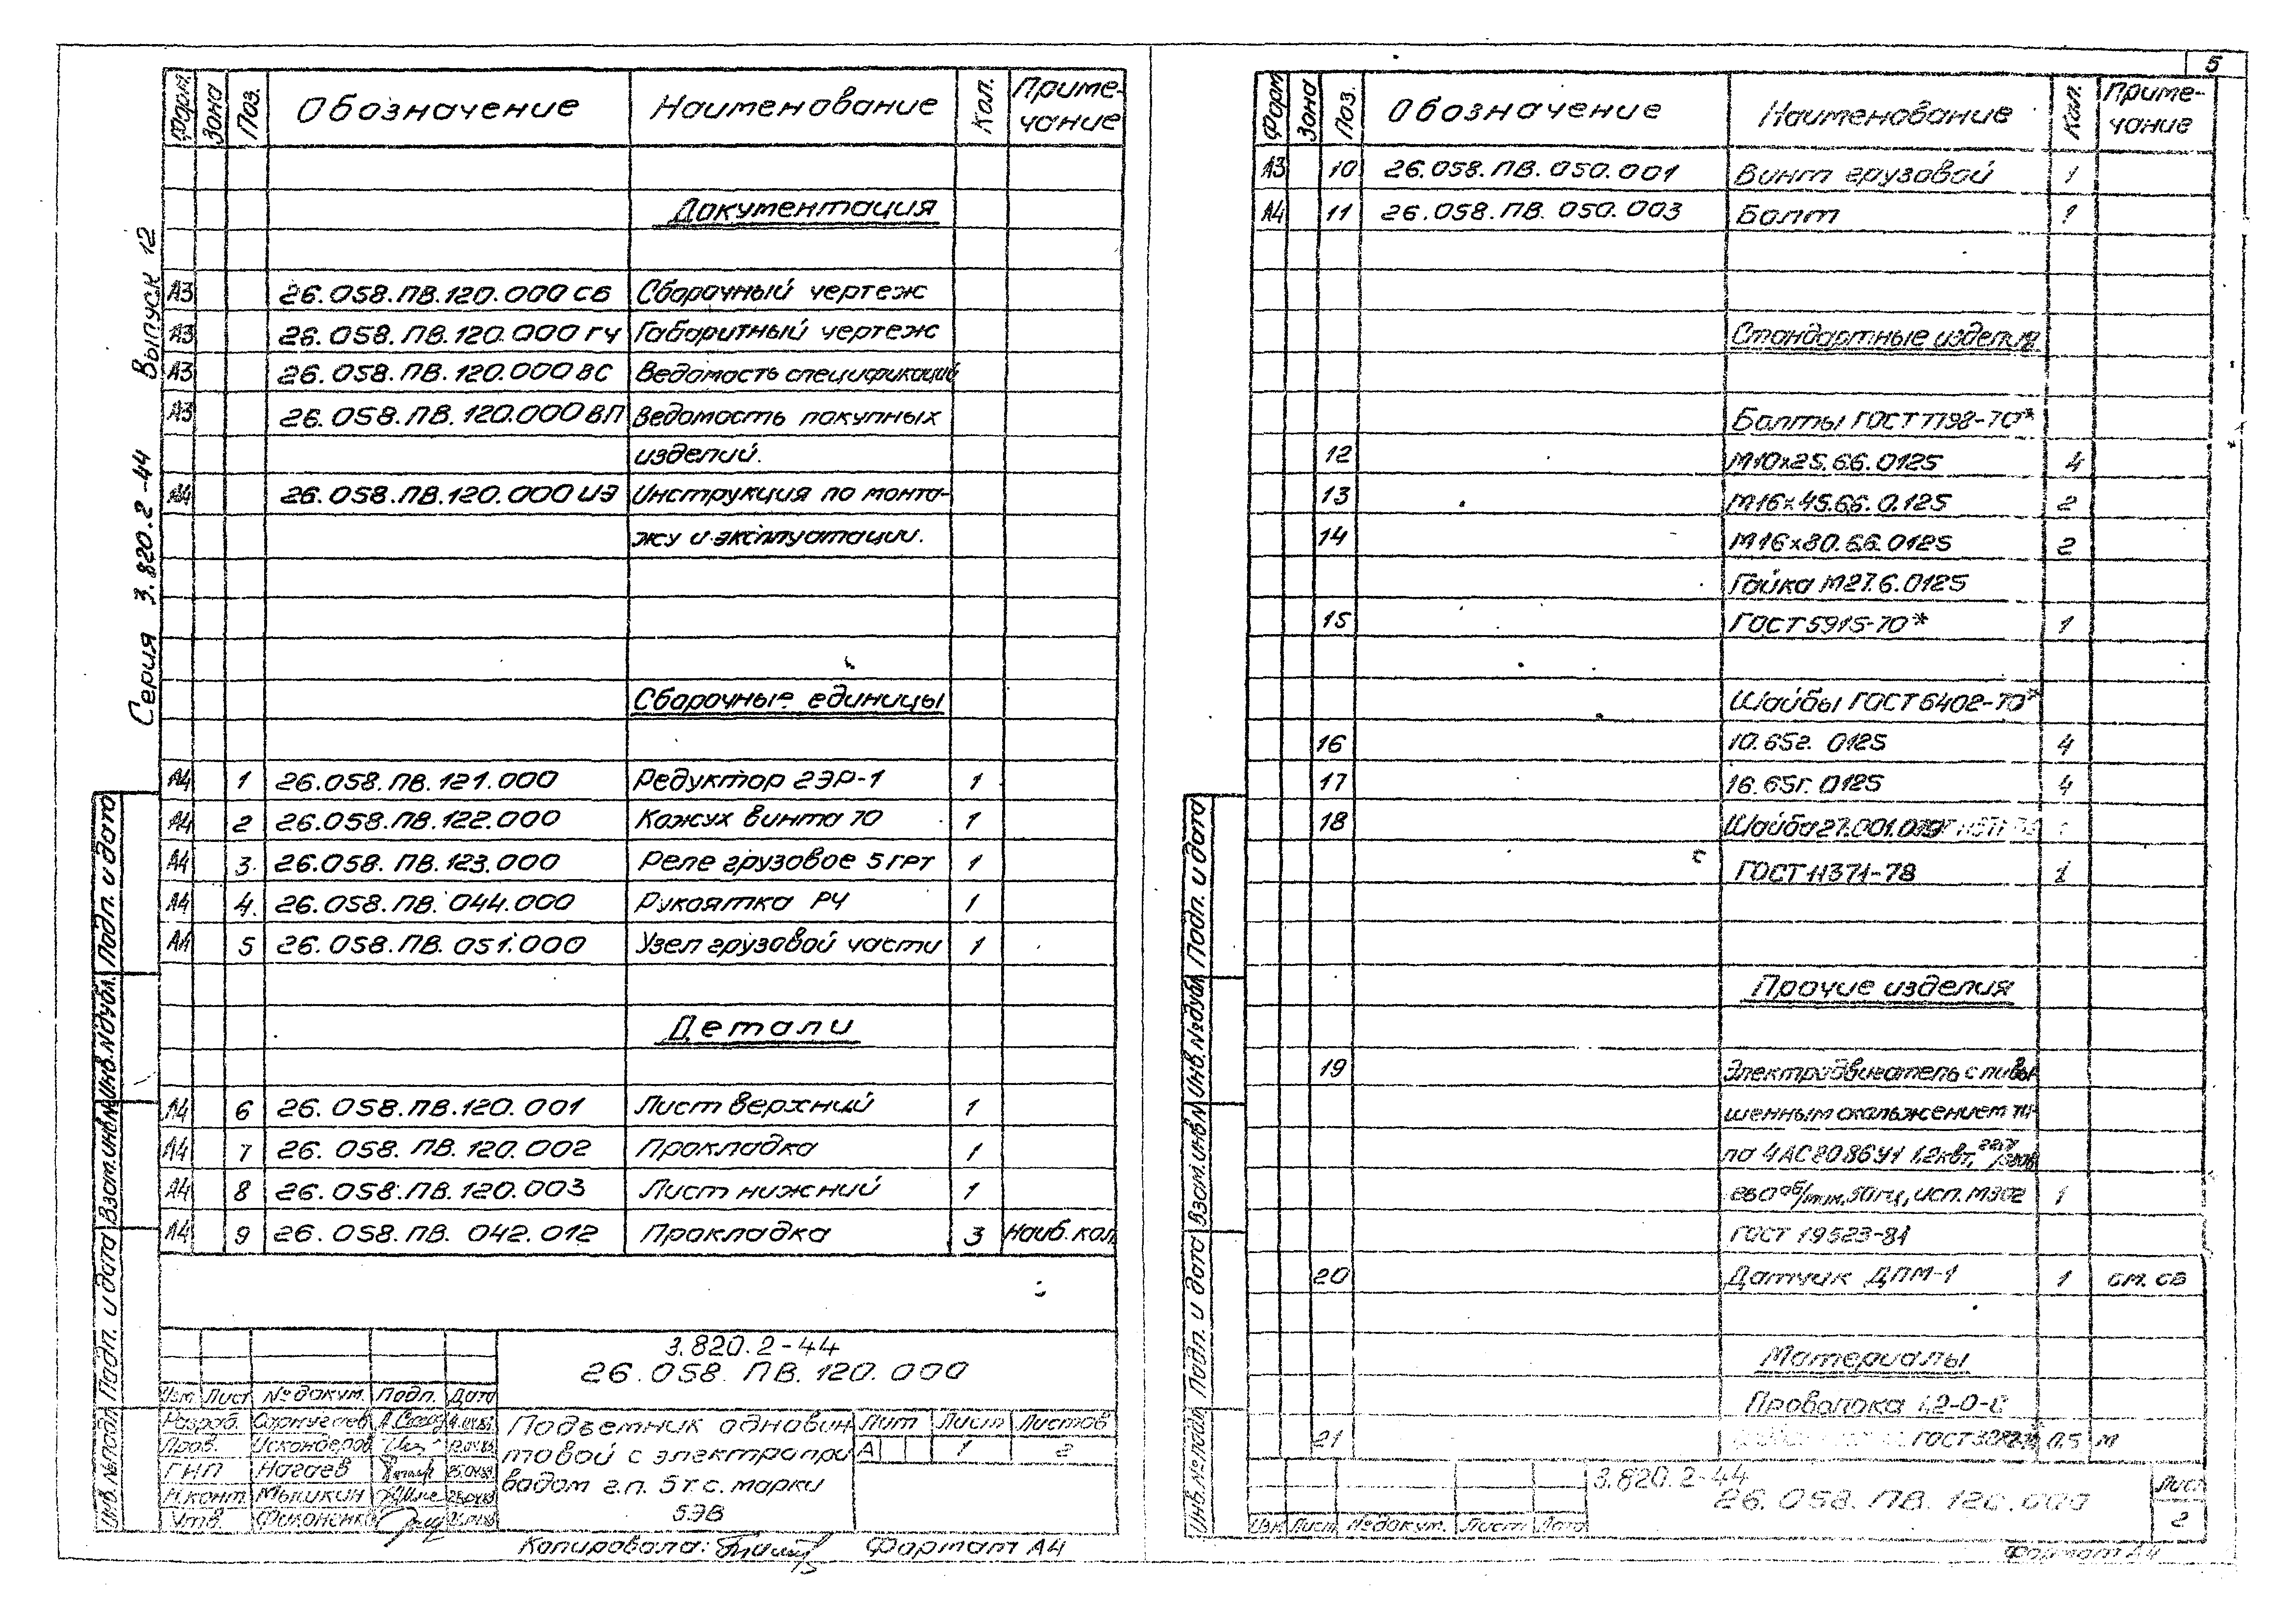 5
Серия 3.820.2-44 Выпуск 12
Форм. Зона Поз. Обозначение Наименование Кол. Приме-
чание
Документация
А3 26.058.ПВ.120.000 СБ Сборочный чертеж
А3 26.058.ПВ.120.000 ГЧ Габаритный чертеж
А3 26.058.ПВ.120.000 ВС Ведомость спецификаций
А3 26.058.ПВ.120.000 ВП Ведомость покупных
изделий.
А4 26.058.ПВ.120.000 ИЭ Инструкция по монта-
жу и эксплуатации.
Сборочные единицы
А4 1 26.058.ПВ.121.000 Редуктор 2ЭР-1 1
А4 2 26.058.ПВ.122.000 Кожух винта 70 1
А4 3. 26.058.ПВ.123.000 Реле грузовое 5 ГРТ 1
А4 4. 26.058.ПВ.044.000 Рукоятка РЧ 1
А4 5 26.058.ПВ.051.000 Узел грузовой части 1
Детали
А4 6 26.058.ПВ.120.001 Лист верхний 1
А4 7 26.058.ПВ.120.002 Прокладка 1
А4 8 26.058.ПВ.120.003 Лист нижний 1
А4 9 26.058.ПВ.042.012 Прокладка 3 Наиб. кол.
3.820.2-44
26.058.ПВ.120.000
Изм Лист № докум. Подп. Дата
Разраб.
Пров. Искандеров
ГИП Нагаев
Н.конт. Мышкин
Утв.
Подъемник одновин
товой с электропри
вадом г.п. 5т.с. марки
5ЭВ
Лит Лист Листов
А 1 2
Инв.№подл Подп. и дата Взам.инв.№ Инв.№дубл. Подп. и дата
Копировала: Формат А4
Форм Зона Поз. Обозначение Наименование Кол. Приме-
чание
А3 10 26.058.ПВ.050.001 Винт грузовой 1
А4 11 26.058.ПВ.050.003 Болт 1
Стандартные изделия
Болты ГОСТ 7798-70*
12 М10х25.66.0125 4
13 М16х45.66.0.125 2
14 М16х80.66.0125 2
Гайка М27.6.0125
15 ГОСТ 5915-70* 1
Шайбы ГОСТ 6402-70*
16 10.65г. 0125 4
17 16.65г. 0125 4
18 Шайба 27.001.019
ГОСТ 11371-78 1
Прочие изделия
19 Электродвигатель с повы-
шенным скольжением ти-
па 4АС80В6У1 1,2квт,
об/мин, 50гц, исп. М302 1
ГОСТ 19523-81
20 Датчик ДПМ-1 1 см. СБ
Материалы
Проволока 1,2-О-С
21 ГОСТ 0.5 м
3.820.2-44
26.058.ПВ.120.000
Изм Лист № докум. Лист Дата
Лист
2
Инв.№подл Подп. и дата Взам.инв.№ Инв.№дубл Подп. и дата
Формат А4